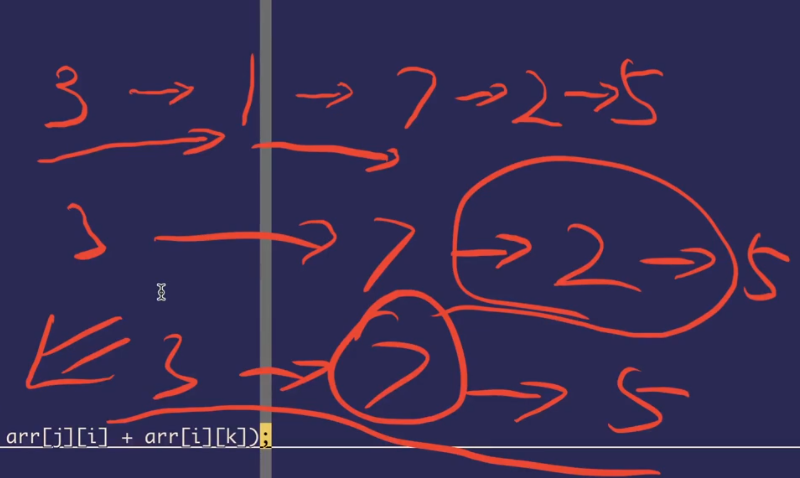 3 → 1 → 7 → 2 → 5
3 → 7 → 2 → 5
3 → 7 → 5
arr[j][i] + arr[i][k]);